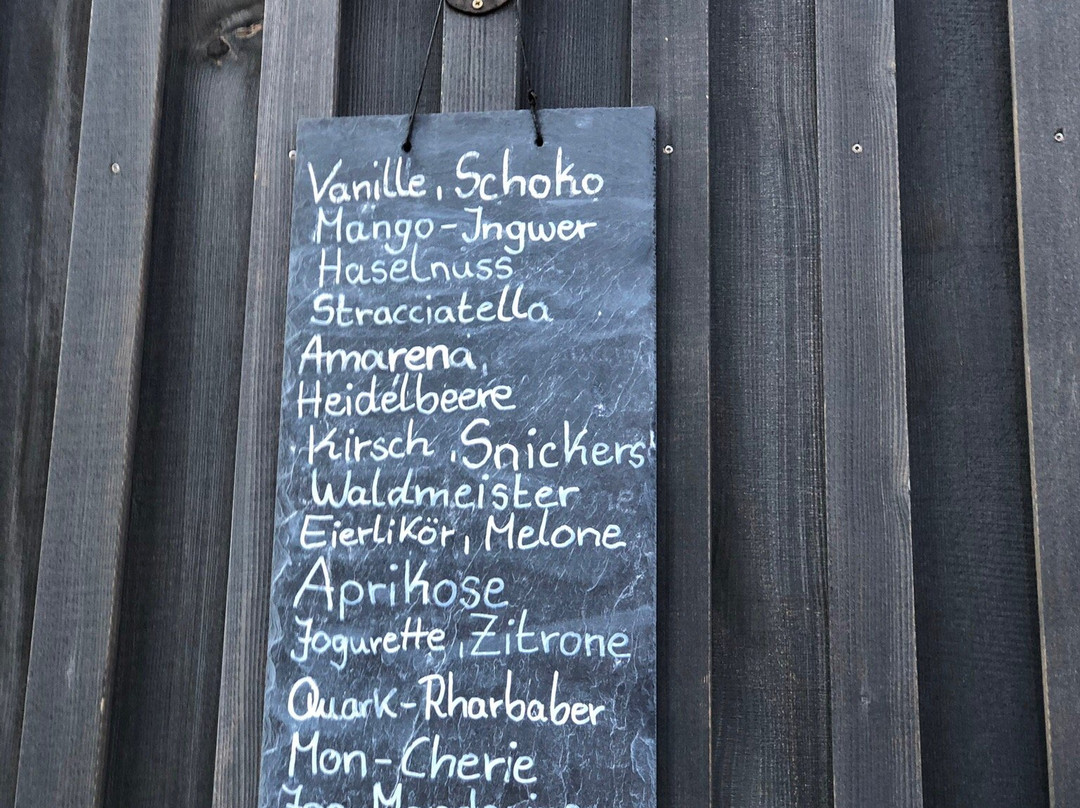 Vanille, Schoko
Mango-Ingwer
Haselnuss
Stracciatella
Amarena,
Heidelbeere
Kirsch, Snickers
Waldmeister
Eierlikör, Melone
Aprikose
Jogurette, Zitrone
Quark-Rharbaber
Mon-Cherie